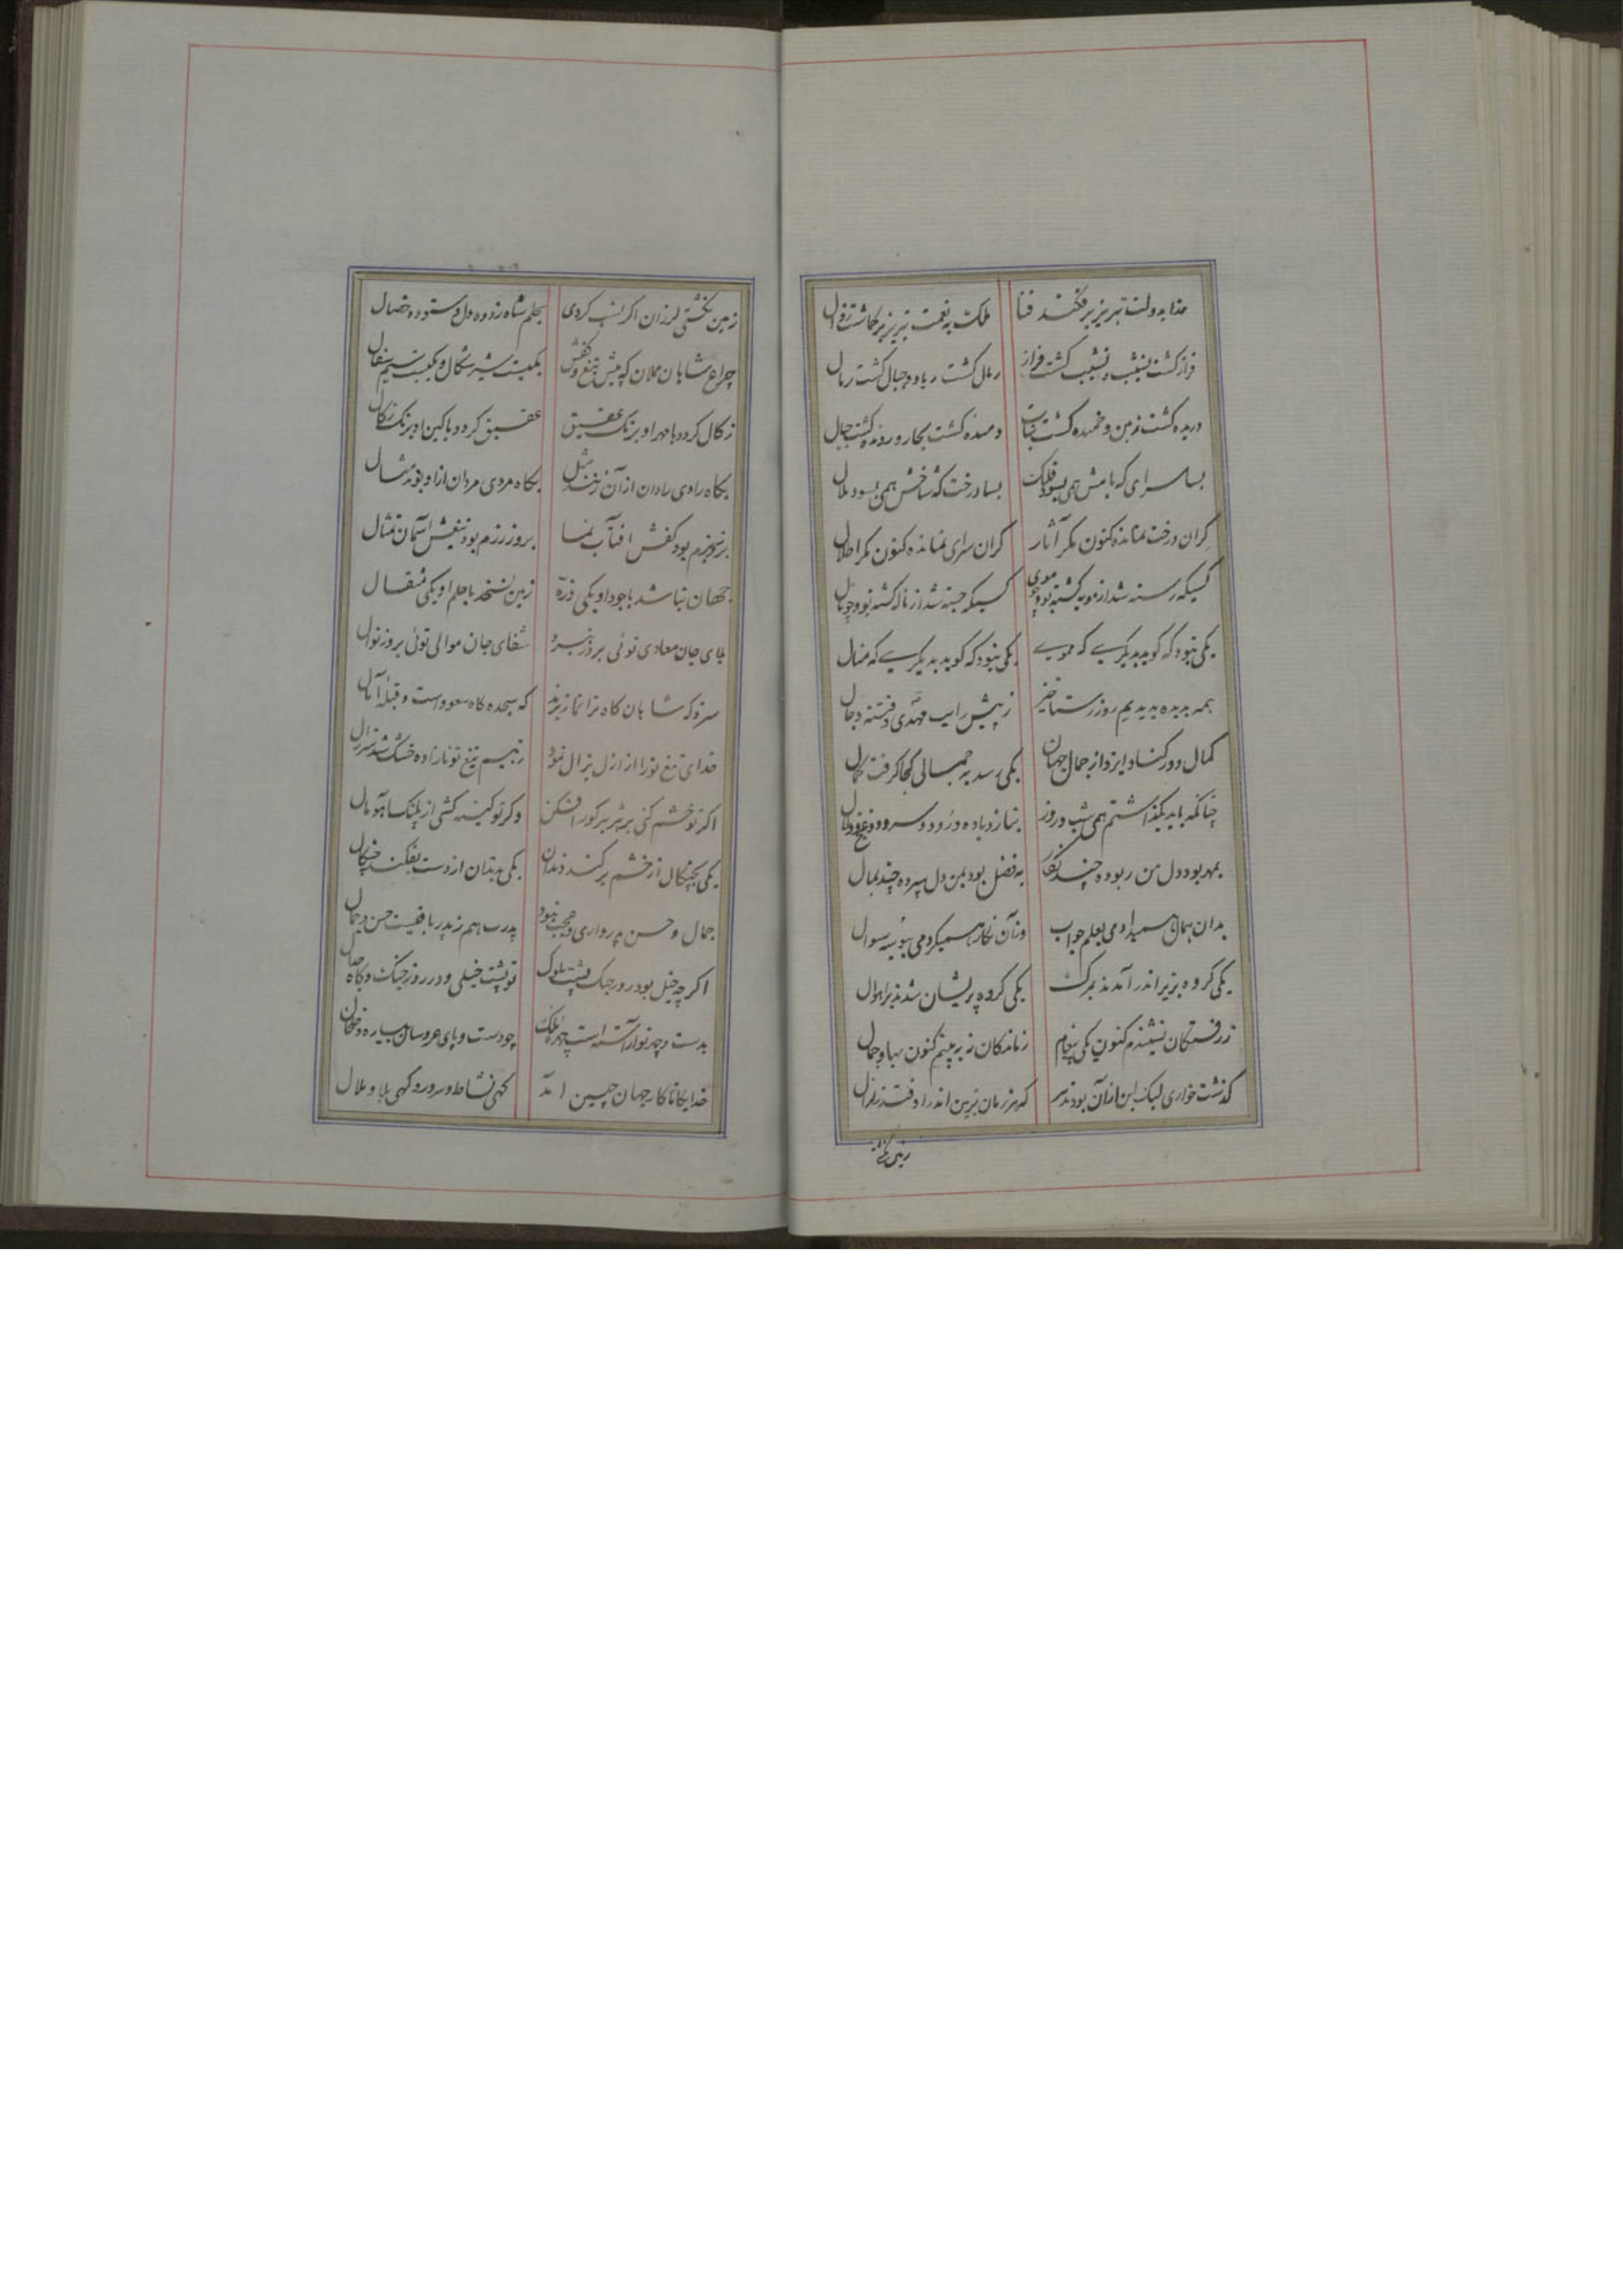 خدا بدولت تبریز بر فکند فنا ملک به نعمت تبریز بر کماشت زوال
فراز کشت نشیب و نشیب کشت فراز رمال کشت رماد و جبال کشت رمال
دریده کشت زمین و خمیده کشت نبات دمنده کشت بحار و رونده کشت جبال
بسا سرای که بامش همی بسود فلک بسا درخت که شاخش همی بسود هلال
کزان درخت نمانده کنون مکر آثار کزان سرای نمانده کنون مکر اطلال
کسیکه رسته شد از مویه کشته بود چو موی کسیکه جسته شد از ناله کشته بود چو نال
یکی نبود که کوید بدیکری که مموی یکی نبود که کوید بدیکری که منال
همه بدیده بدیدیم روز رستاخیز ز پیش رایت مهدی و فتنه دجال
کمال دور کناد ایزد از جمال جهان یکی رسد به جمالی کجا کرفت کمال
چنانکه باید بکذاشتم همی شب و روز بناز و باده و رود و سرود و غنج و دلال
بمهر بود دل من ربوده چند نکار به فضل بود بمن دل سپرده چند همال
بدان همال همیدادمی بعلم جواب وزآن نکار همیکردمی ببوسه سوال
یکی کروه بزیر اندر آمدند بمرک یکی کروه پریشان شدند از اهوال
ز رفتکان نشنیدم کنون یکی پیغام ز ماندکان نه ببینم کنون بها و جمال
کذشت خواری لیک این ازآن بود بدتر که هر زمان بزمین اندر اوفتد زلزال
زمین نکشتی
زمین نکشتی لرزان اکر نسب کردی بحلم شاه زدوده دل و ستوده خصال
چراغ شاهان مملان که پیش تیغ و کفش یکیست شیر شکال و یکیست سیم سفال
زکال کردد با مهر او برنک عقیق عقیق کردد با کین او برنک زکال
بکاه رادی رادان از آن زنند مثل بکاه مردی مردان از او برند مثال
بروز بزم بود کفش آفتاب نما بروز رزم بود تیغش آسمان تمثال
جهان نباشد با جود او یکی ذره زمین نسنجد با حلم او یکی مثقال
بلای جان معادی توئی بروز نبرد شفای جان موالی توئی بروز نوال
سزد که شاهان کاه ترا نماز برند که سجده کاه سعود است و قبله آمال
خدای تیغ تورا از ازل بزال نمود ز بیم تیغ تو نازاده خشک شد سر زال
اکر تو خشم کنی بر هژبر کور افکن وکر تو کینه کشی از پلنک آهو مال
یکی بچنکال از خشم برکند دندان یکی بدندان از دست بفکند چنکال
جمال و حسن پدر داری و عجب نبود پدرت هم ز پدر یافتست حسن و جمال
اکر چه خیل بود روز جنک پشت ملوک تو پشت خیلی در روز جنک و کاه جدال
بدست و چهر تو آراسته است چهر ملک چو دست و پای عروسان بیاره و خلخال
خدایکانا کار جهان چنین آمد کهی نشاط و سرور و کهی بلا و ملال